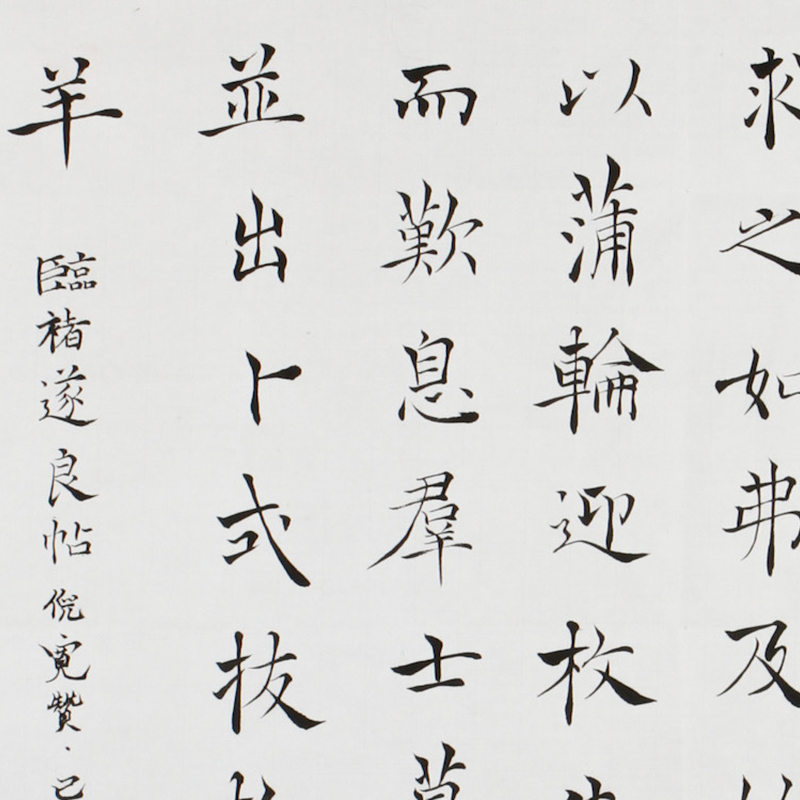 求之如弗及
以蒲輪迎枚
而歎息羣士
並出卜式拔
羊
臨褚遂良帖倪寬贊、己